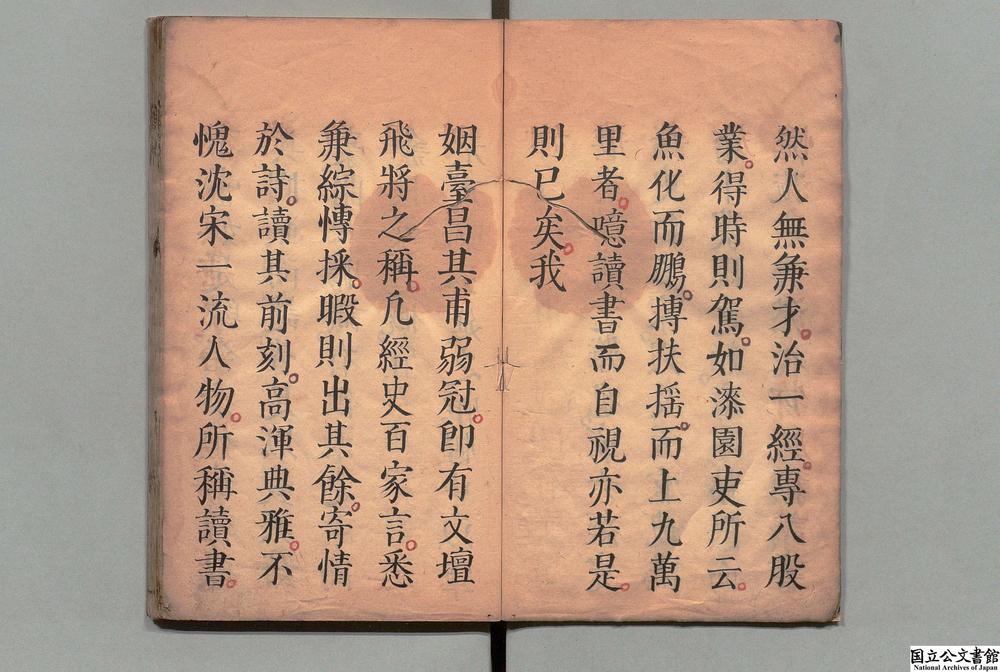 然人無兼才。治一經。專八股
業。得時則駕。如漆園吏所云。
魚化而鵬。摶扶搖。而上九萬
里者。噫讀書而自視亦若是。
則已矣。我
姻臺昌其甫弱冠。即有文壇
飛將之稱。凡經史百家言。悉
兼綜慱採。暇則出其餘。寄情
於詩。讀其前刻。高渾典雅。不
愧沈宋一流人物。所稱讀書。
国立公文書館
National Archives of Japan